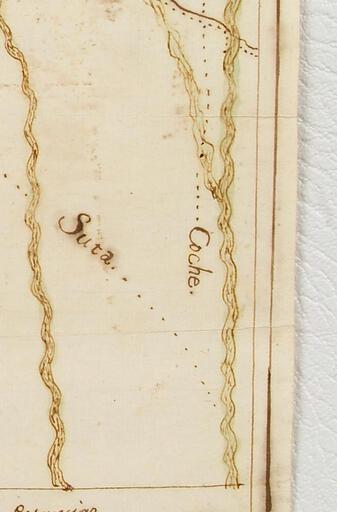 Suta.
Coche.